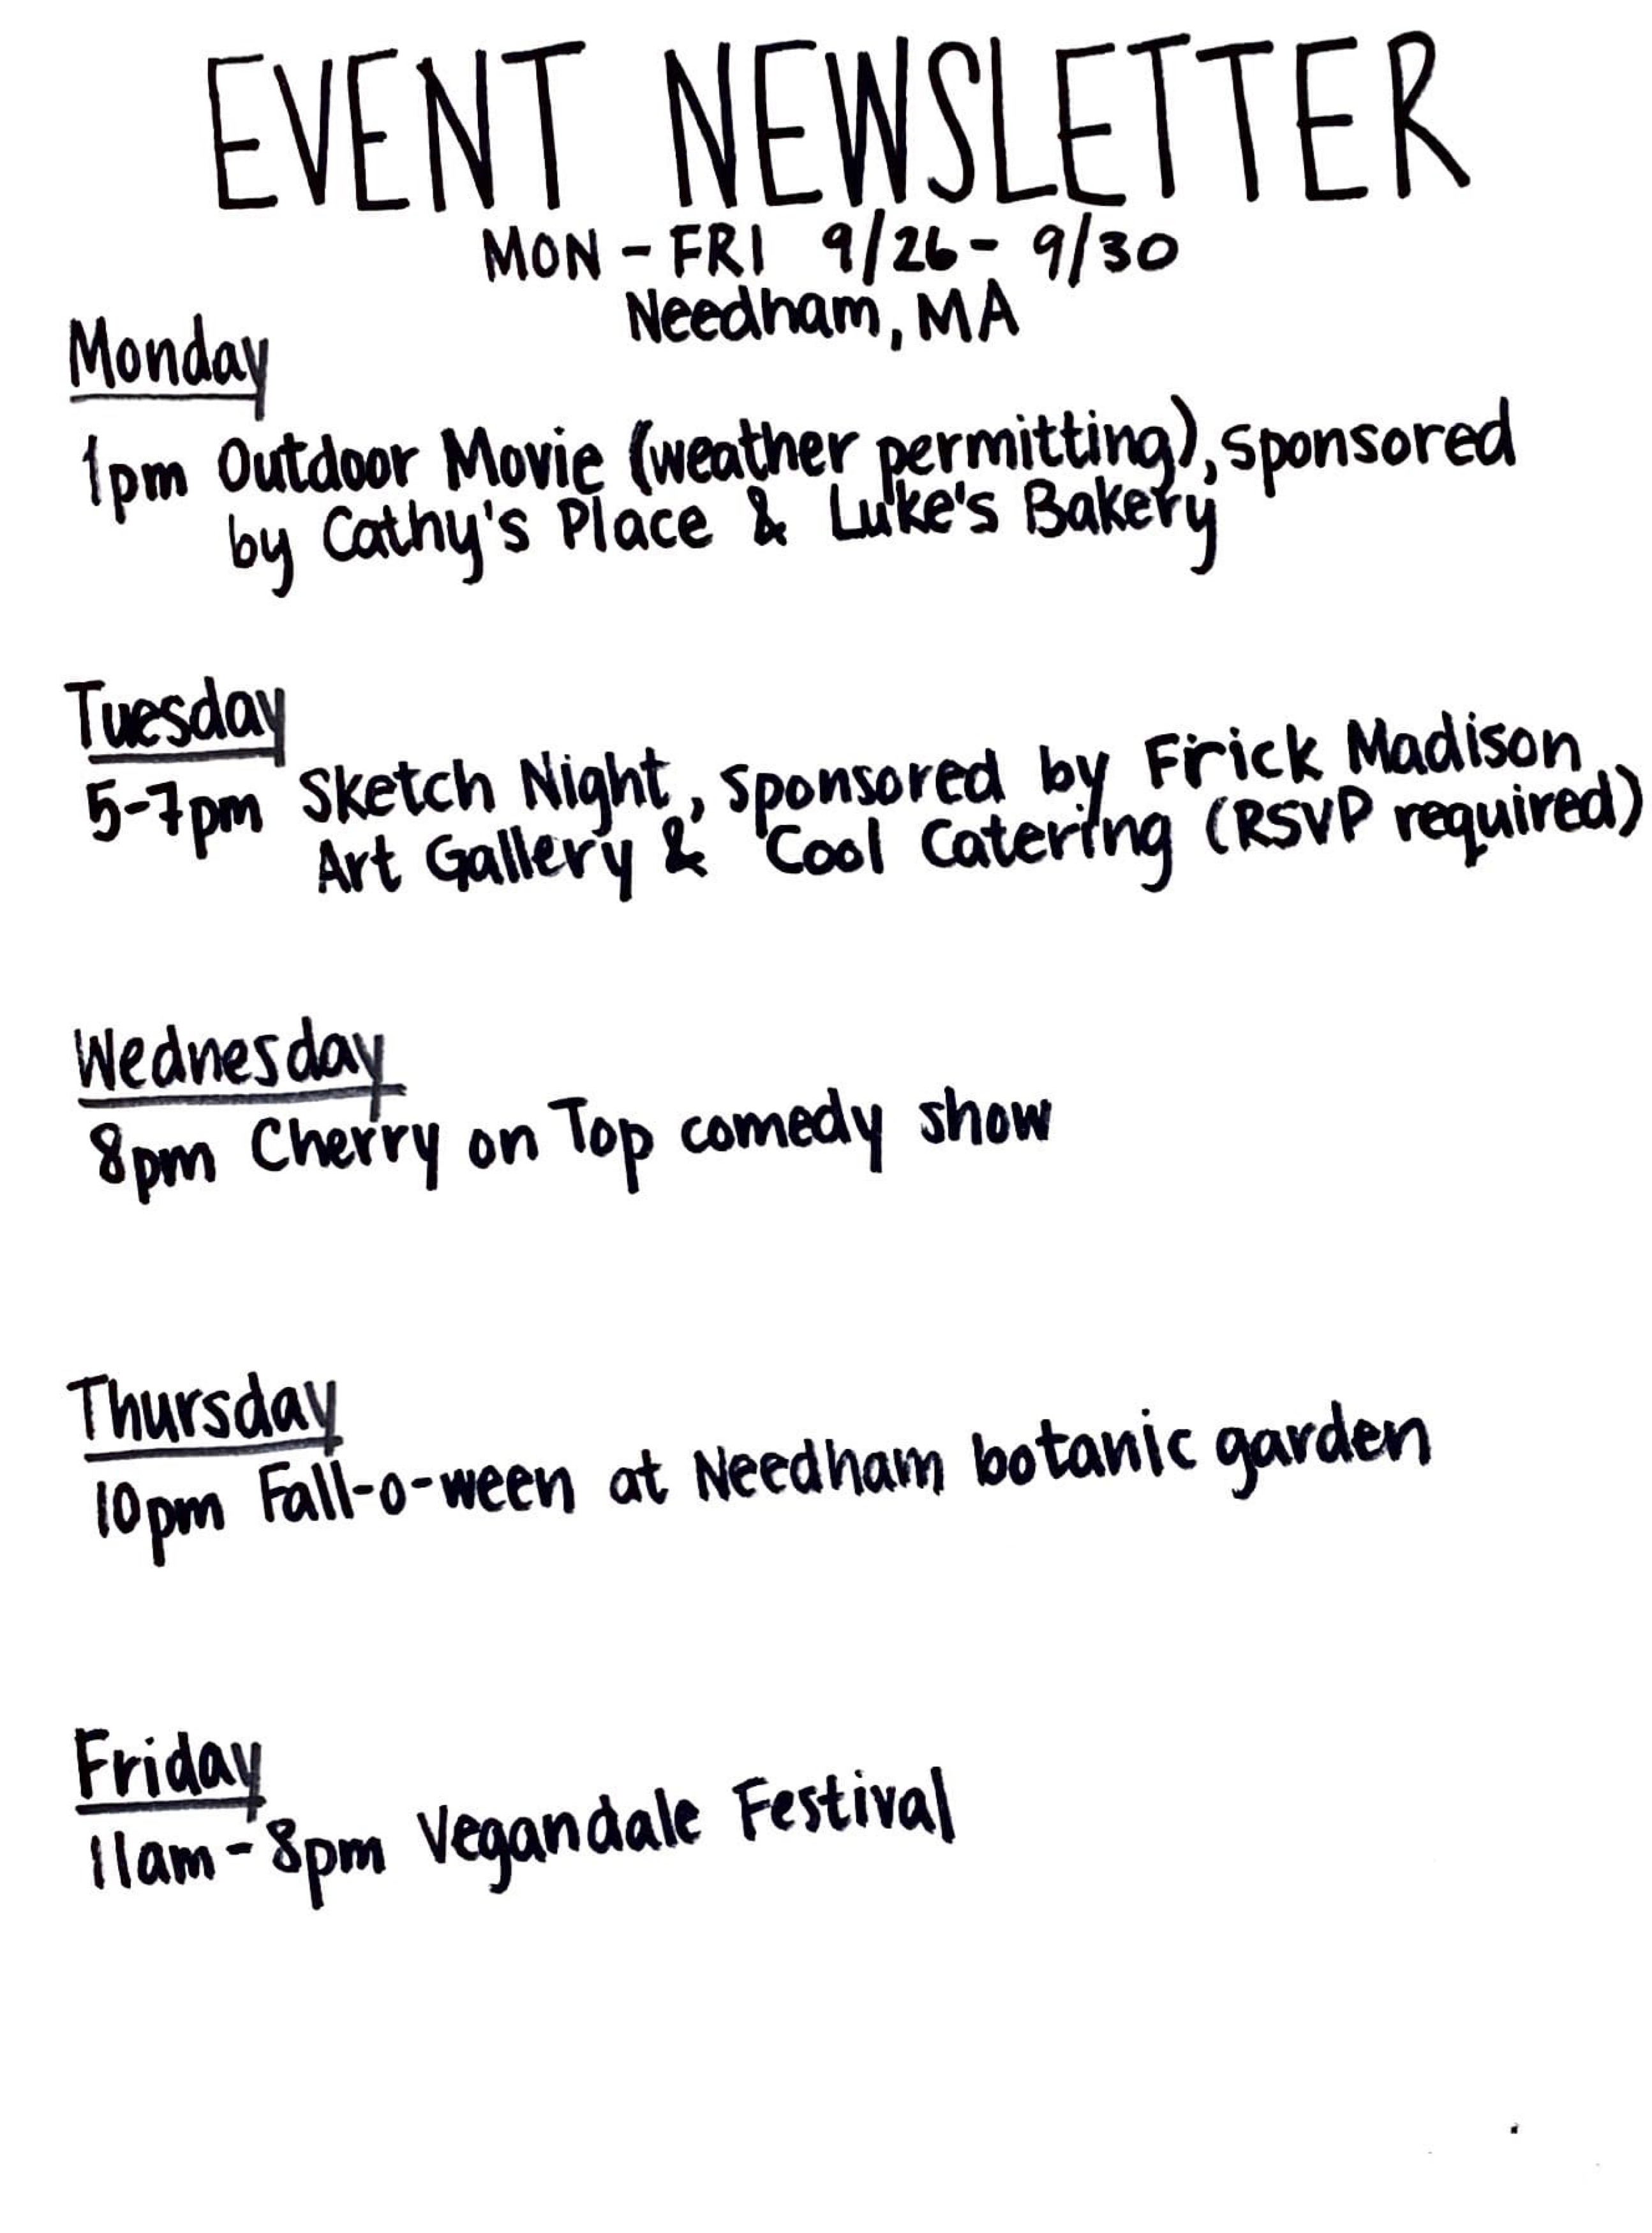 EVENT NEWSLETTER
MON - FRI 9/26 - 9/30
Needham, MA
Monday
1pm Outdoor Movie (weather permitting), sponsored
by Cathy's Place & Luke's Bakery
Tuesday
5-7pm Sketch Night, sponsored by Frick Madison
Art Gallery & Cool Catering (RSVP required)
Wednesday
8pm Cherry on Top comedy show
Thursday
10pm Fall-o-ween at Needham botanic garden
Friday
11am - 8pm Vegandale Festival